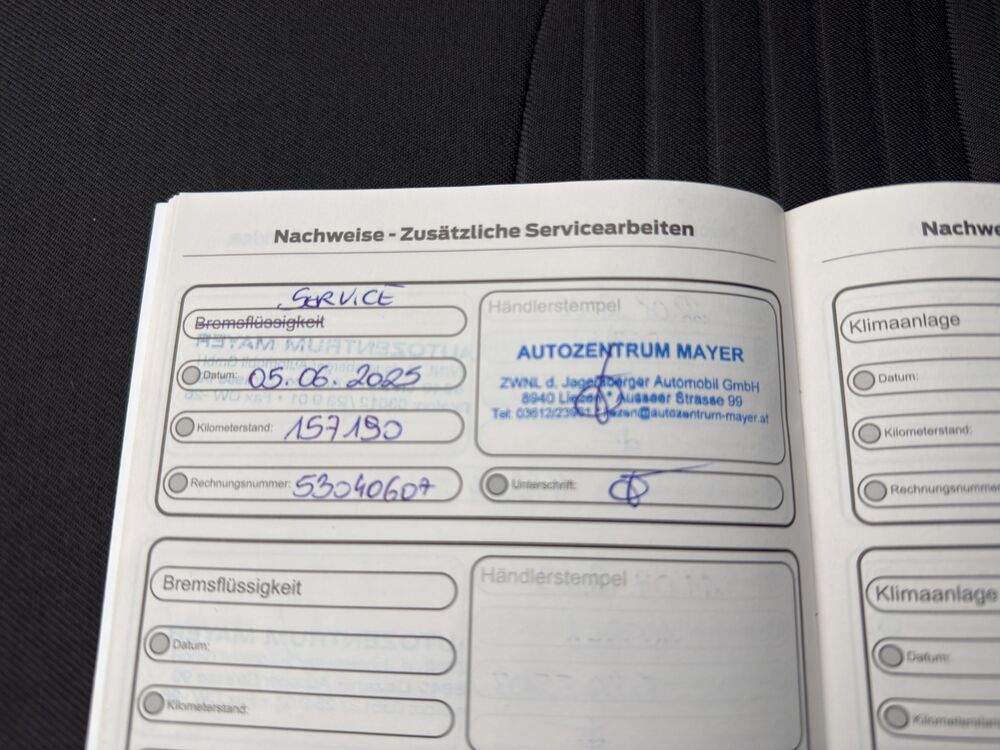 Nachweise - Zusätzliche Servicearbeiten
SERVICE
Bremsflüssigkeit
Datum: 05.06.2025
Kilometerstand: 157190
Rechnungsnummer: 53040607
Händlerstempel
AUTOZENTRUM MAYER
ZWNL d. Jagersberger Automobil GmbH
8940 Liezen * Ausseer Strasse 99
Tel: 03612/23901 liezen@autozentrum-mayer.at
Unterschrift:
Bremsflüssigkeit
Datum:
Kilometerstand:
Händlerstempel
Nachwe
Klimaanlage
Datum:
Kilometerstand:
Rechnungsnumme
Klimaanlage
Datum:
Kilometerstand